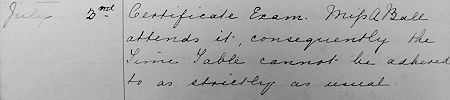 July 2nd Certificate Exam. Miss A Ball
attends it, consequently the
Time Table cannot be adhered
to as strictly as usual.